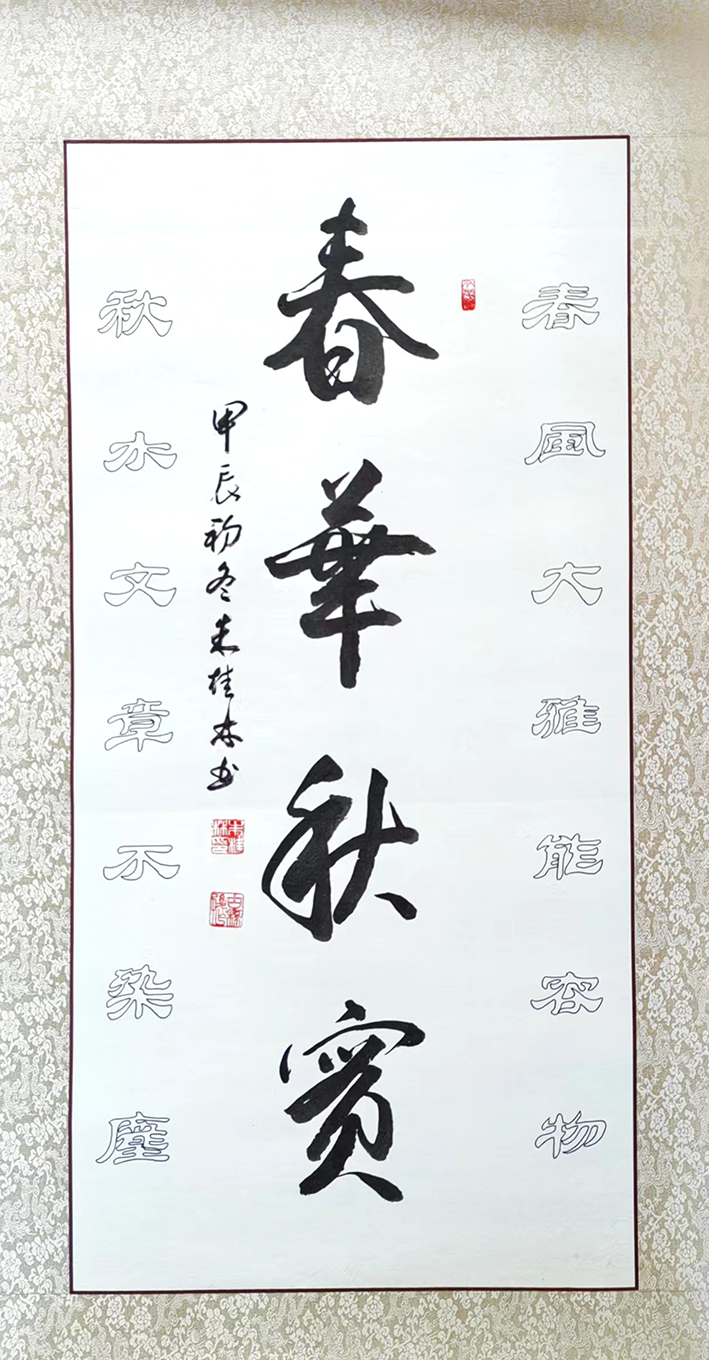 春風大雅能容物
春華秋實
甲辰初冬朱桂林书
朱桂林印
秋水文章不染塵